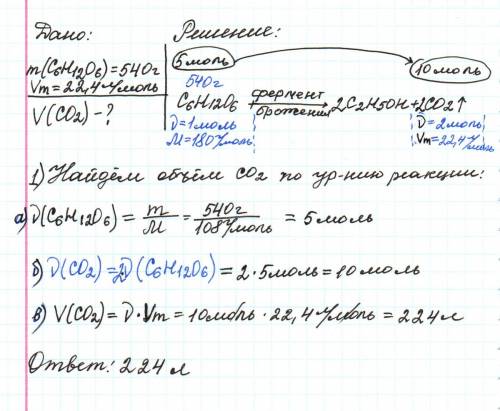 Дано:
Решение:
m(C6H12O6)=540г
Vm=22,4л/моль
V(CO2)-?
5моль
10моль
540г
C6H12O6 фермент брожения 2C2H5OH+2CO2↑
D=1моль
M=180г/моль
D=2моль
Vm=22,4л/моль
1) Найдём объём CO2 по ур-нию реакции:
а) D(C6H12O6)=m/M=540г/108г/моль=5моль
б) D(CO2)=2D(C6H12O6)=2·5моль=10моль
в) V(CO2)=D·Vm=10моль·22,4л/моль=224л
Ответ: 224л